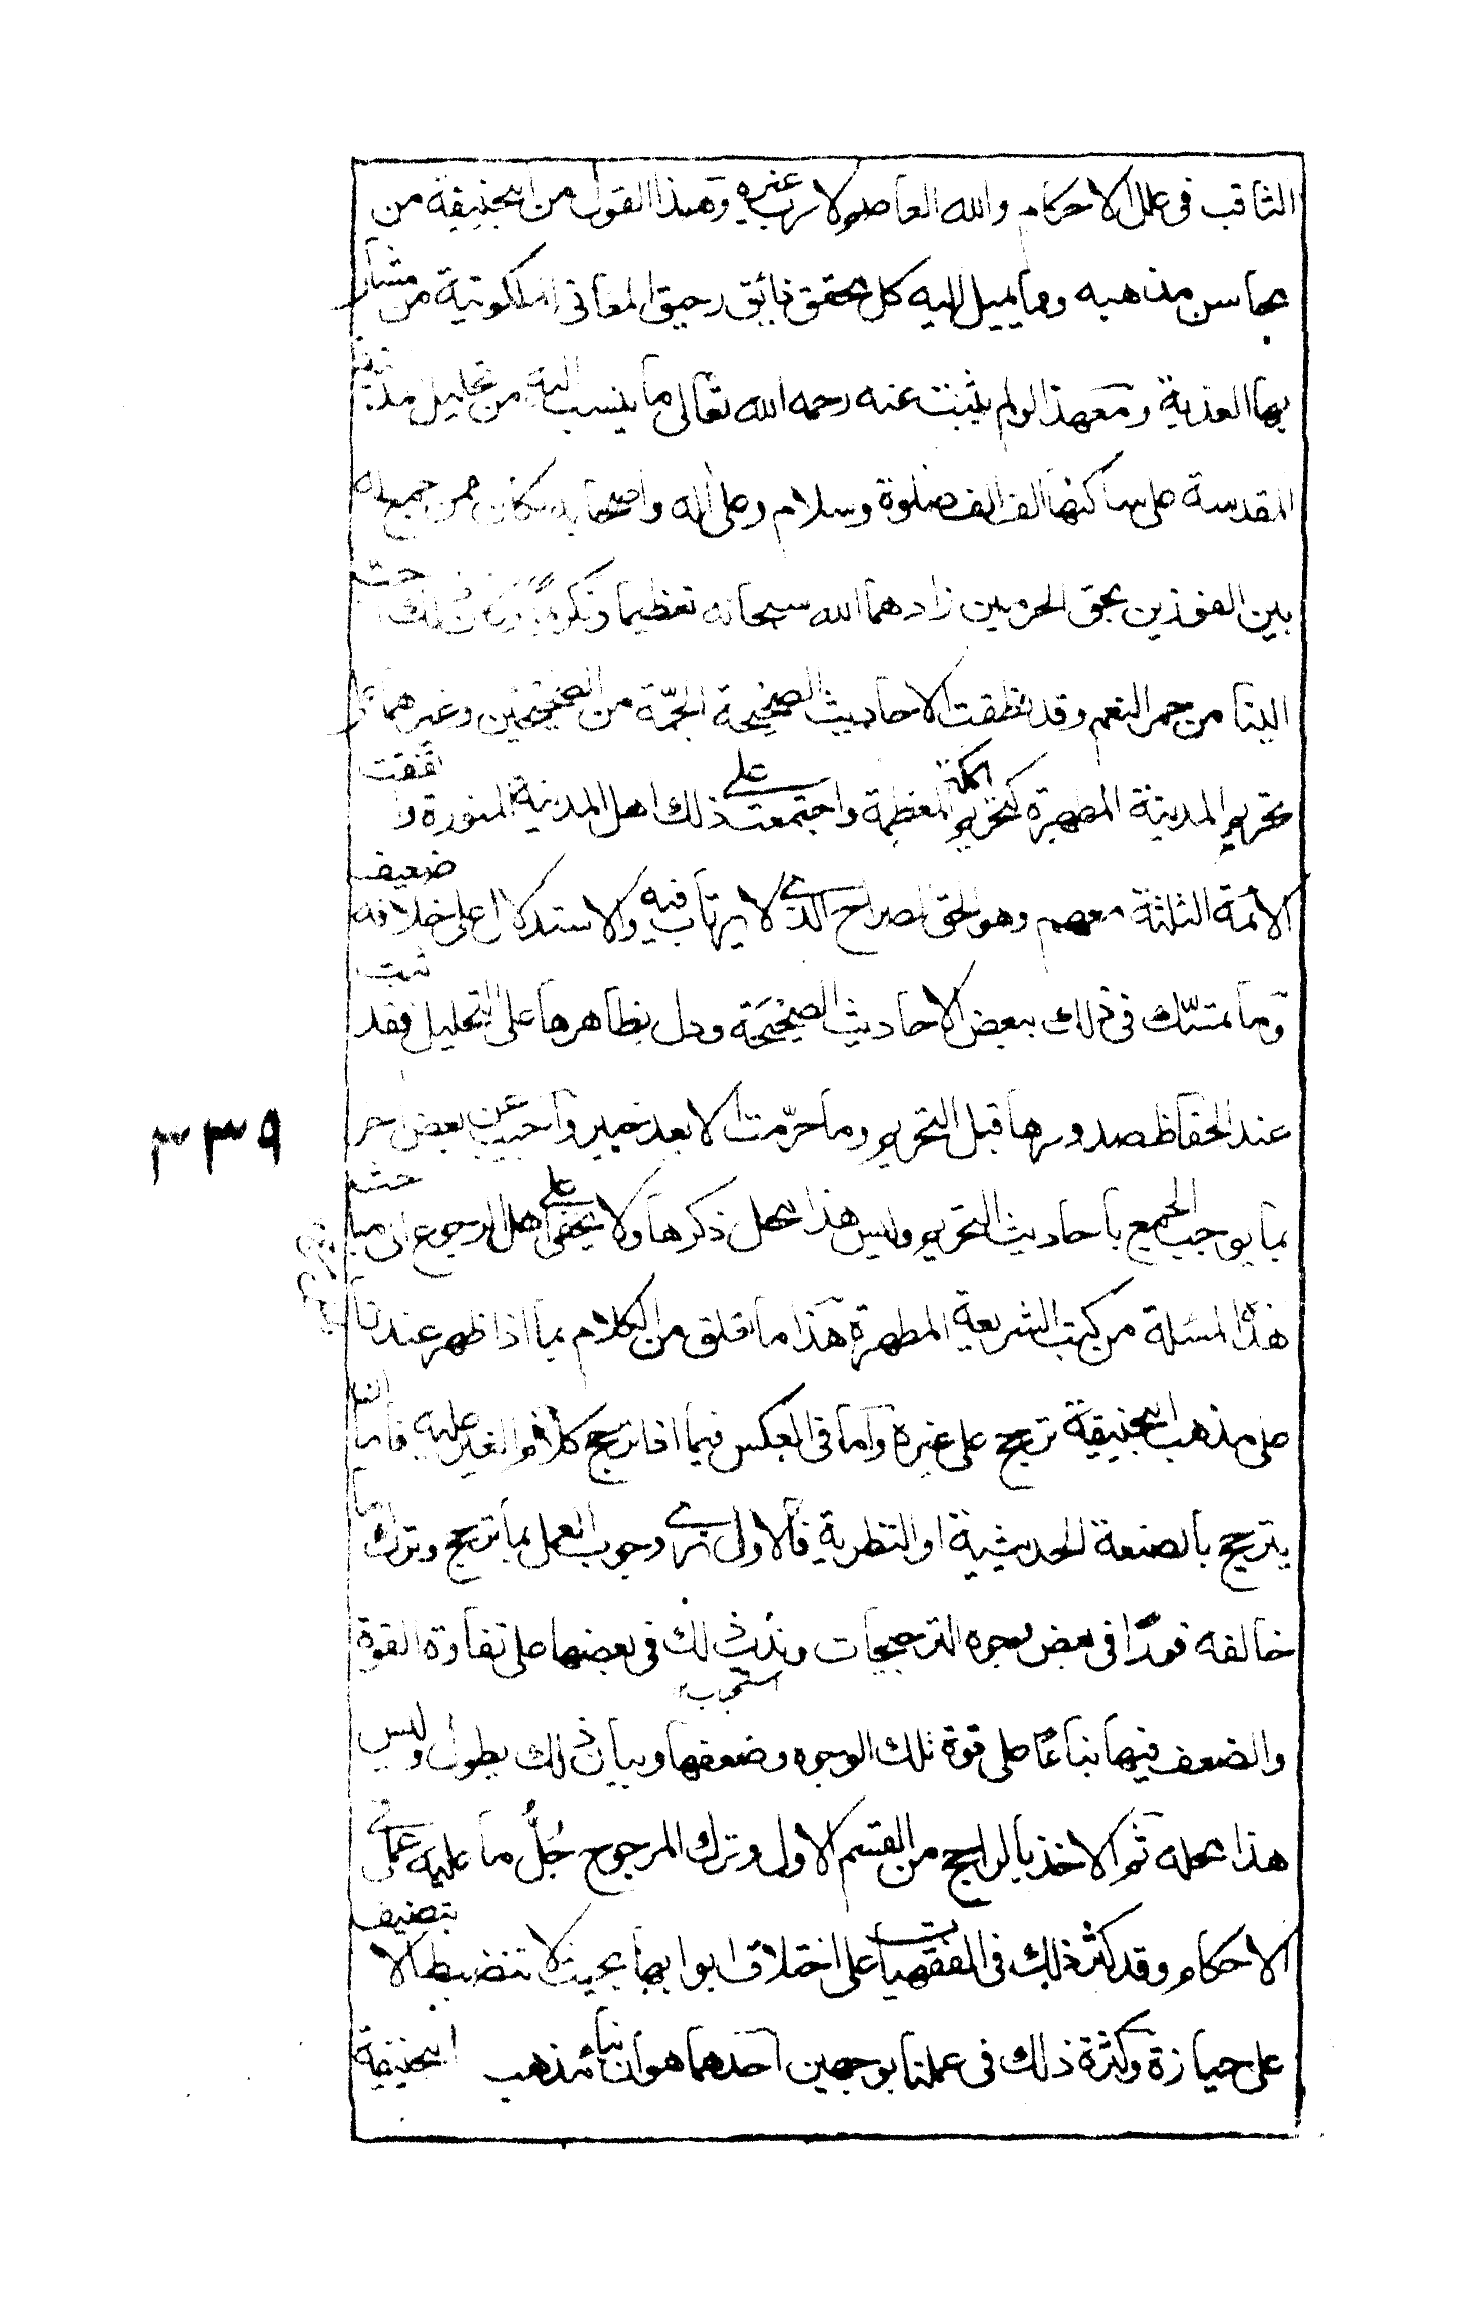 الثاقب في علل الاحكام والله العاصم لا رب غيره وهذا القول من ابيحنيفة من
محاسن مذهبه ومما يميل اليه كل محقق ذائق رحيق المعاني الملكوتية من مشار
بها العذبة ومع هذا لو لم يثبت عنه رحمه الله تعالى ما ينسب اليه من تحليل مدينة
المقدسة على ساكنها الف الف صلوة وسلام وعلى آله واصحابه لكان ممن جمع له
بين الفوزين بحق الحرمين زادهما الله سبحانه تعظيما وتكريما وكان ذلك احب
الينا من حمر النعم وقد نطقت الاحاديث الصحيحة الجمّة من الصحيحين وغيرهما على
تحريم المدينة المطهرة كتحريم مكة المعظمة واجتمعت على ذلك اهل المدينة المنورة واتفقت
الأئمة الثلثة معهم وهو الحق الصراح الذي لا يرتاب فيه والاستدلال على خلافه ضعيف
وما تمسّك في ذلك ببعض الاحاديث الصحيحة ودل بظاهرها على التحليل فقد ثبت
عند الحفاظ صدورها قبل التحريم وما حرّمت الا بعد خيبر واجيب عن بعض اخر
بما يوجب الجمع باحاديث التحريم وليس هذا محل ذكرها ولا يخفى على اهل الرجوع الى مباحث
هذه المسئلة من كتب الشريعة المطهرة هذا ما تعلق من الكلام بما اذا ظهر عندنا
على مذهب ابيحنيفة ترجيح على غيره وأما في العكس فيما اذا ترجح كلام الغير عليه فاما ان
يترجح بالصنعة الحديثية او النظرية فالاول نرى وجوب العمل بما ترجح وترك ما
خالفه فورًا في بعض وجوه الترجيحات ونستحب ذلك في بعضها على تفاوة القوة
والضعف فيها بناءً على قوة تلك الوجوه وضعفها وبيان ذلك يطول وليس
هذا محله ثم الاخذ بالراجح من القسم الاول وترك المرجوح جُلُّ ما عليه عملي في
الاحكام وقد كثر ذلك في الفقهيات على اختلاف ابوابها بحيث لا تنضبط الا بتصنيف
على حيازة وكثرة ذلك في عملنا بوجهين احدهما هو ان بناء مذهب ابيحنيفة
٣٣٩